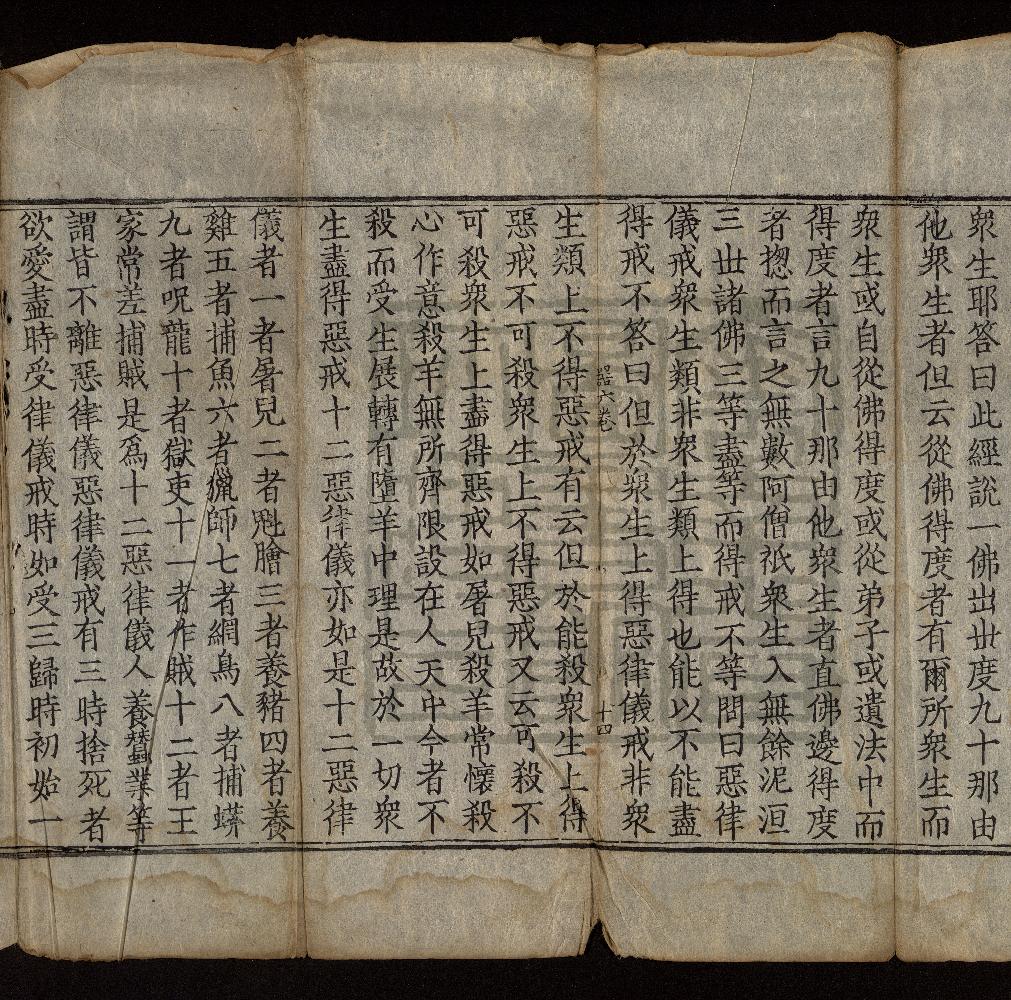 衆生耶答曰此經說一佛出丗度九十那由
他衆生者但云從佛得度者有爾所衆生而
衆生或自從佛得度或從弟子或遺法中而
得度者言九十那由他衆生者直佛邊得度
者揔而言之無數阿僧祇衆生入無餘泥洹
三丗諸佛三等盡等而得戒不等問曰惡律
儀戒衆生類非衆生類上得也能以不能盡
得戒不答曰但於衆生上得惡律儀戒非衆
器六卷 十四
生類上不得惡戒有云但於能殺衆生上得
惡戒不可殺衆生上不得惡戒又云可殺不
可殺衆生上盡得惡戒如屠兒殺羊常懷殺
心作意殺羊無所齊限設在人天中今者不
殺而受生展轉有墮羊中理是故於一切衆
生盡得惡戒十二惡律儀亦如是十二惡律
儀者一者屠兒二者魁膾三者養豬四者養
雞五者捕魚六者獵師七者網鳥八者捕蟒
九者呪龍十者獄吏十一者作賊十二者王
家常差捕賊是爲十二惡律儀人養蠶業等
謂皆不離惡律儀惡律儀戒有三時捨死者
欲愛盡時受律儀戒時如受三歸時初始一